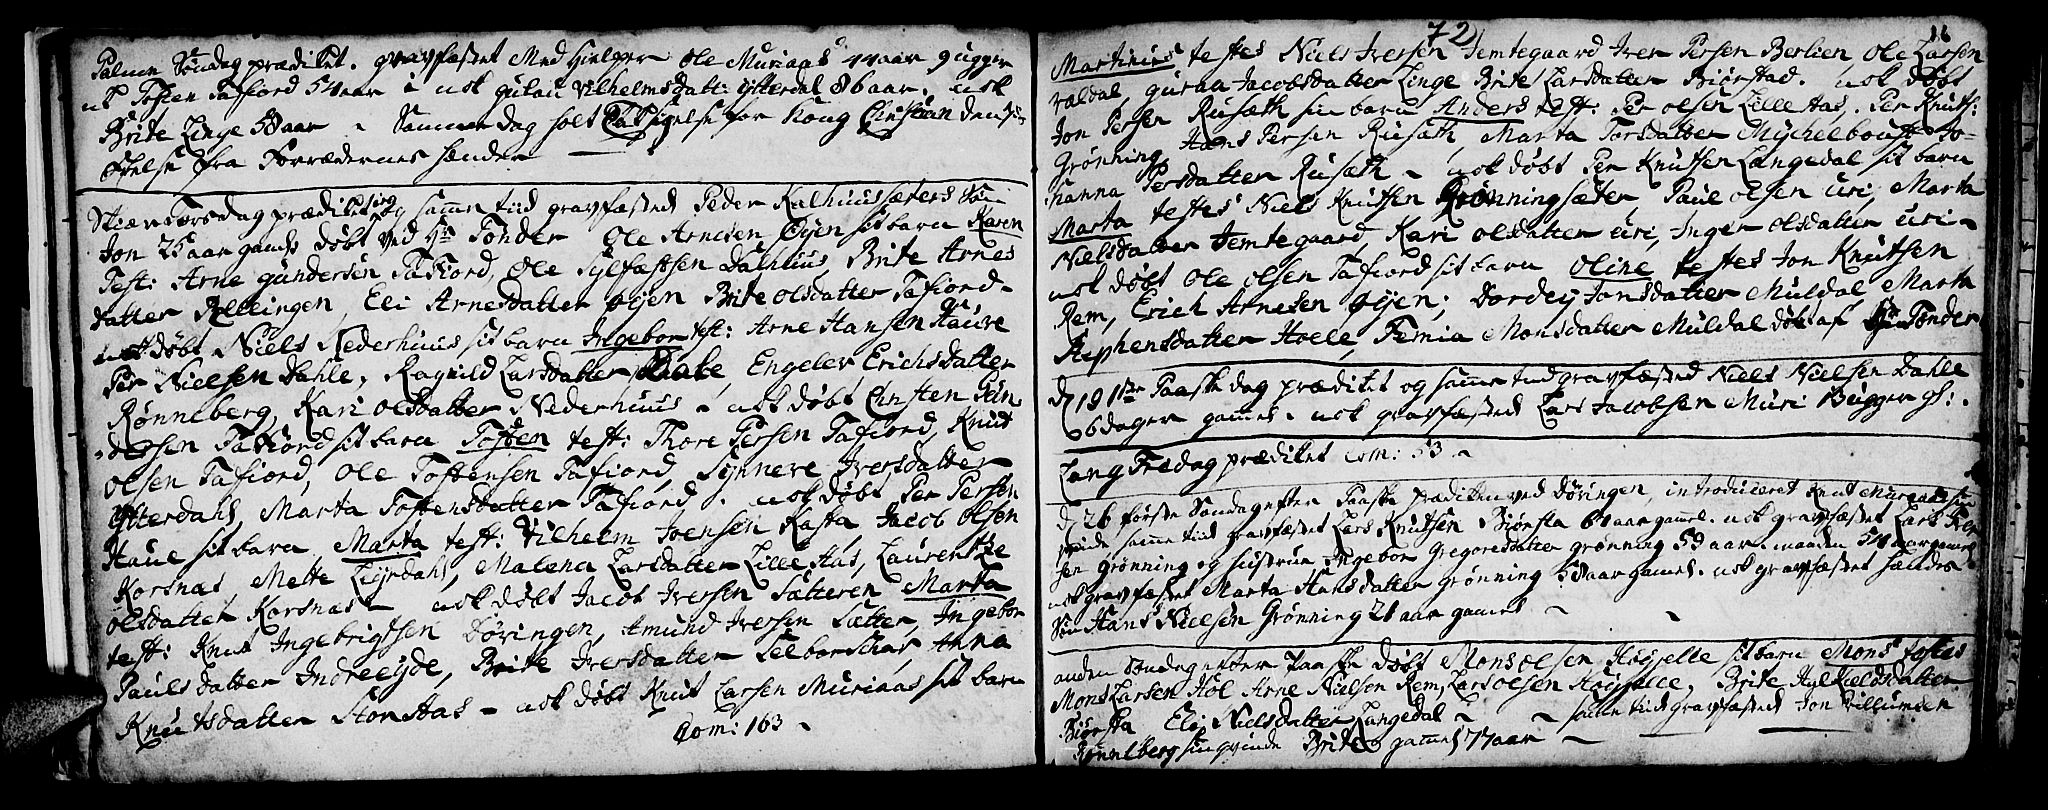 Palme Søndag prædiket. gravfæstet Med Hielper Ole Muraas 44 aar 9 ugger
nk Tosten Tafiord 54 aar i nok gulau Vilhelmsdatt: ytterdal 86 aar. nok
Brite Linge 58 aar - Samme dag holt Taksigelse for Kong Christian den
fra Forrædernes hænder
Skiertorsdag prædiket og samme tiid gravfæsted Peder Kalhuussæters Søn
Jon 26 aar gamel døbt ved Hr Tønder Ole Arnesen Øyen sit barn Karen
Test: Arne gundersen Tafiord, Ole Sylfæstsen Dalhuus, Brite Arnes
datter Rellingen, Eli Arnesdatter Øyen Brite Olsdatter Tafiord -
nok døbt Niels Nederhuus sit barn Ingebor test: Arne Hansen Haure
Per Nielsen Dahle, Ragnild Larsdatter Dale, Engelev Erichsdatter
Rønneberg, Kari Olsdatter Nederhuus - nok døbt Chrsten gun
dersen Tafiord sit barn Tosten test: Thore Persen Tafiord, Knut
Olsen Tafiord, Ole Tostensen Tafiord, Synneve Iversdatter
Ytterdahl, Marta Tostensdatter Tafiord. nok døbt Per Persen
Haue sit barn Marta test: Vilhelm Joensen Kasta, Jacob Olsen
Korsnæs, Mette Liyrdahl, Malena Larsdatter Lille Aas, Laurentze
Olsdatter Korsnæs - nok døbt Jacob Iversen Sætteren Marta
test: Knut Ingebrigtsen Døvingen, Amund Iversen Sætter, Ingebor
Paulsdatter Indreeyde, Brite Iversdatter Anna
Knutsdatter Stor Aas - nok døbt Knut Larsen Muriaas sit barn
Com: 163 -
72
16
Martinus testes Niels Iversen Jemtegaard Iver Persen Berlien, Ole Larsen
valdal guraa Jacobsdatter Linge Brite Larsdatter Biørstad. nok døbt
Jon Persen Rusæth sin barn Anders test: Per Olsen Lille Aas, Per Knuts:
Grønning Hans Persen Rusæth, Marta Torsdatter Mychelboust Jo-
hanna Persdatter Rusæth - nok døbt Per Knutsen Langedal sit barn
Marta testes Niels Knutsen Rønningsæter Paul Olsen uri, Marta
Nielsdatter Jemtegaard, Kari Olsdatter uri, Inger Olsdatter uri -
nok døbt Ole Olsen Tafiord sit barn Oline testes Jon Knutsen
Rem, Erich Arnesen Øyen; Dordey Jonsdatter Muldal Marta
Stephensdatter Hoele, Femia Monsdatter Muldal døbt af Hr Tønder
d 19 1ste Paaske dag prædiket og samme tiid gravfæsted Niels Nielsen Dahle
6 dager gamel - nok gravfæsted Lars Jacobsen Muri Bugger gl:.
Lang Fredag prædiket Com: 53 -
d 26 første Søndag efter Paaske prædiken ved Døvingen, introduceret Knut Muraas
qvinde samme tiid gravfæstet Lars Knutsen Biørsta 64 aar gamel. nok gravfæstet Lars Iver
sen Grønning og hustrue Ingebor Gregoresdatter grønning 59 aar. manden 54 aar gamel
nok gravfæstet Marta Hansdatter Grønning 58 aar gamel. nok gravfæstet hændes
Søn Hans Nielsen Grønning 21 aar gamel -
anden Søndag efter Paaske døbt Mons Olsen Høysette sit barn Mons testes
Mons Larsen Hol Arne Nielsen Rem, Lars Olsen Høysette, Brite
Biørsta Eli Nielsdatter Langedal - samme tiid gravfæsted Jon Villumsen
Rønneberg sin qvinde Brite gamel 77 aar -